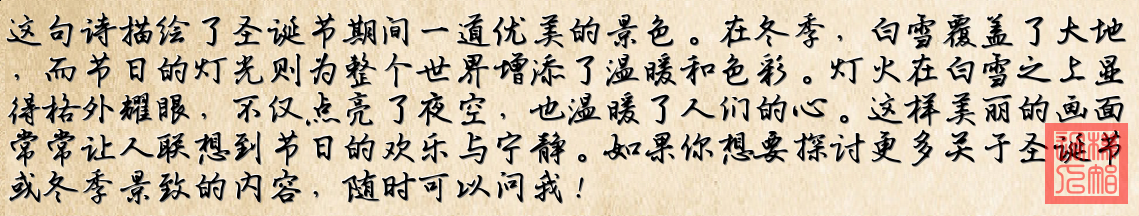 这句诗描绘了圣诞节期间一道优美的景色。在冬季，白雪覆盖了大地
，而节日的灯光则为整个世界增添了温暖和色彩。灯火在白雪之上显
得格外耀眼，不仅点亮了夜空，也温暖了人们的心。这样美丽的画面
常常让人联想到节日的欢乐与宁静。如果你想要探讨更多关于圣诞节
或冬季景致的内容，随时可以问我！